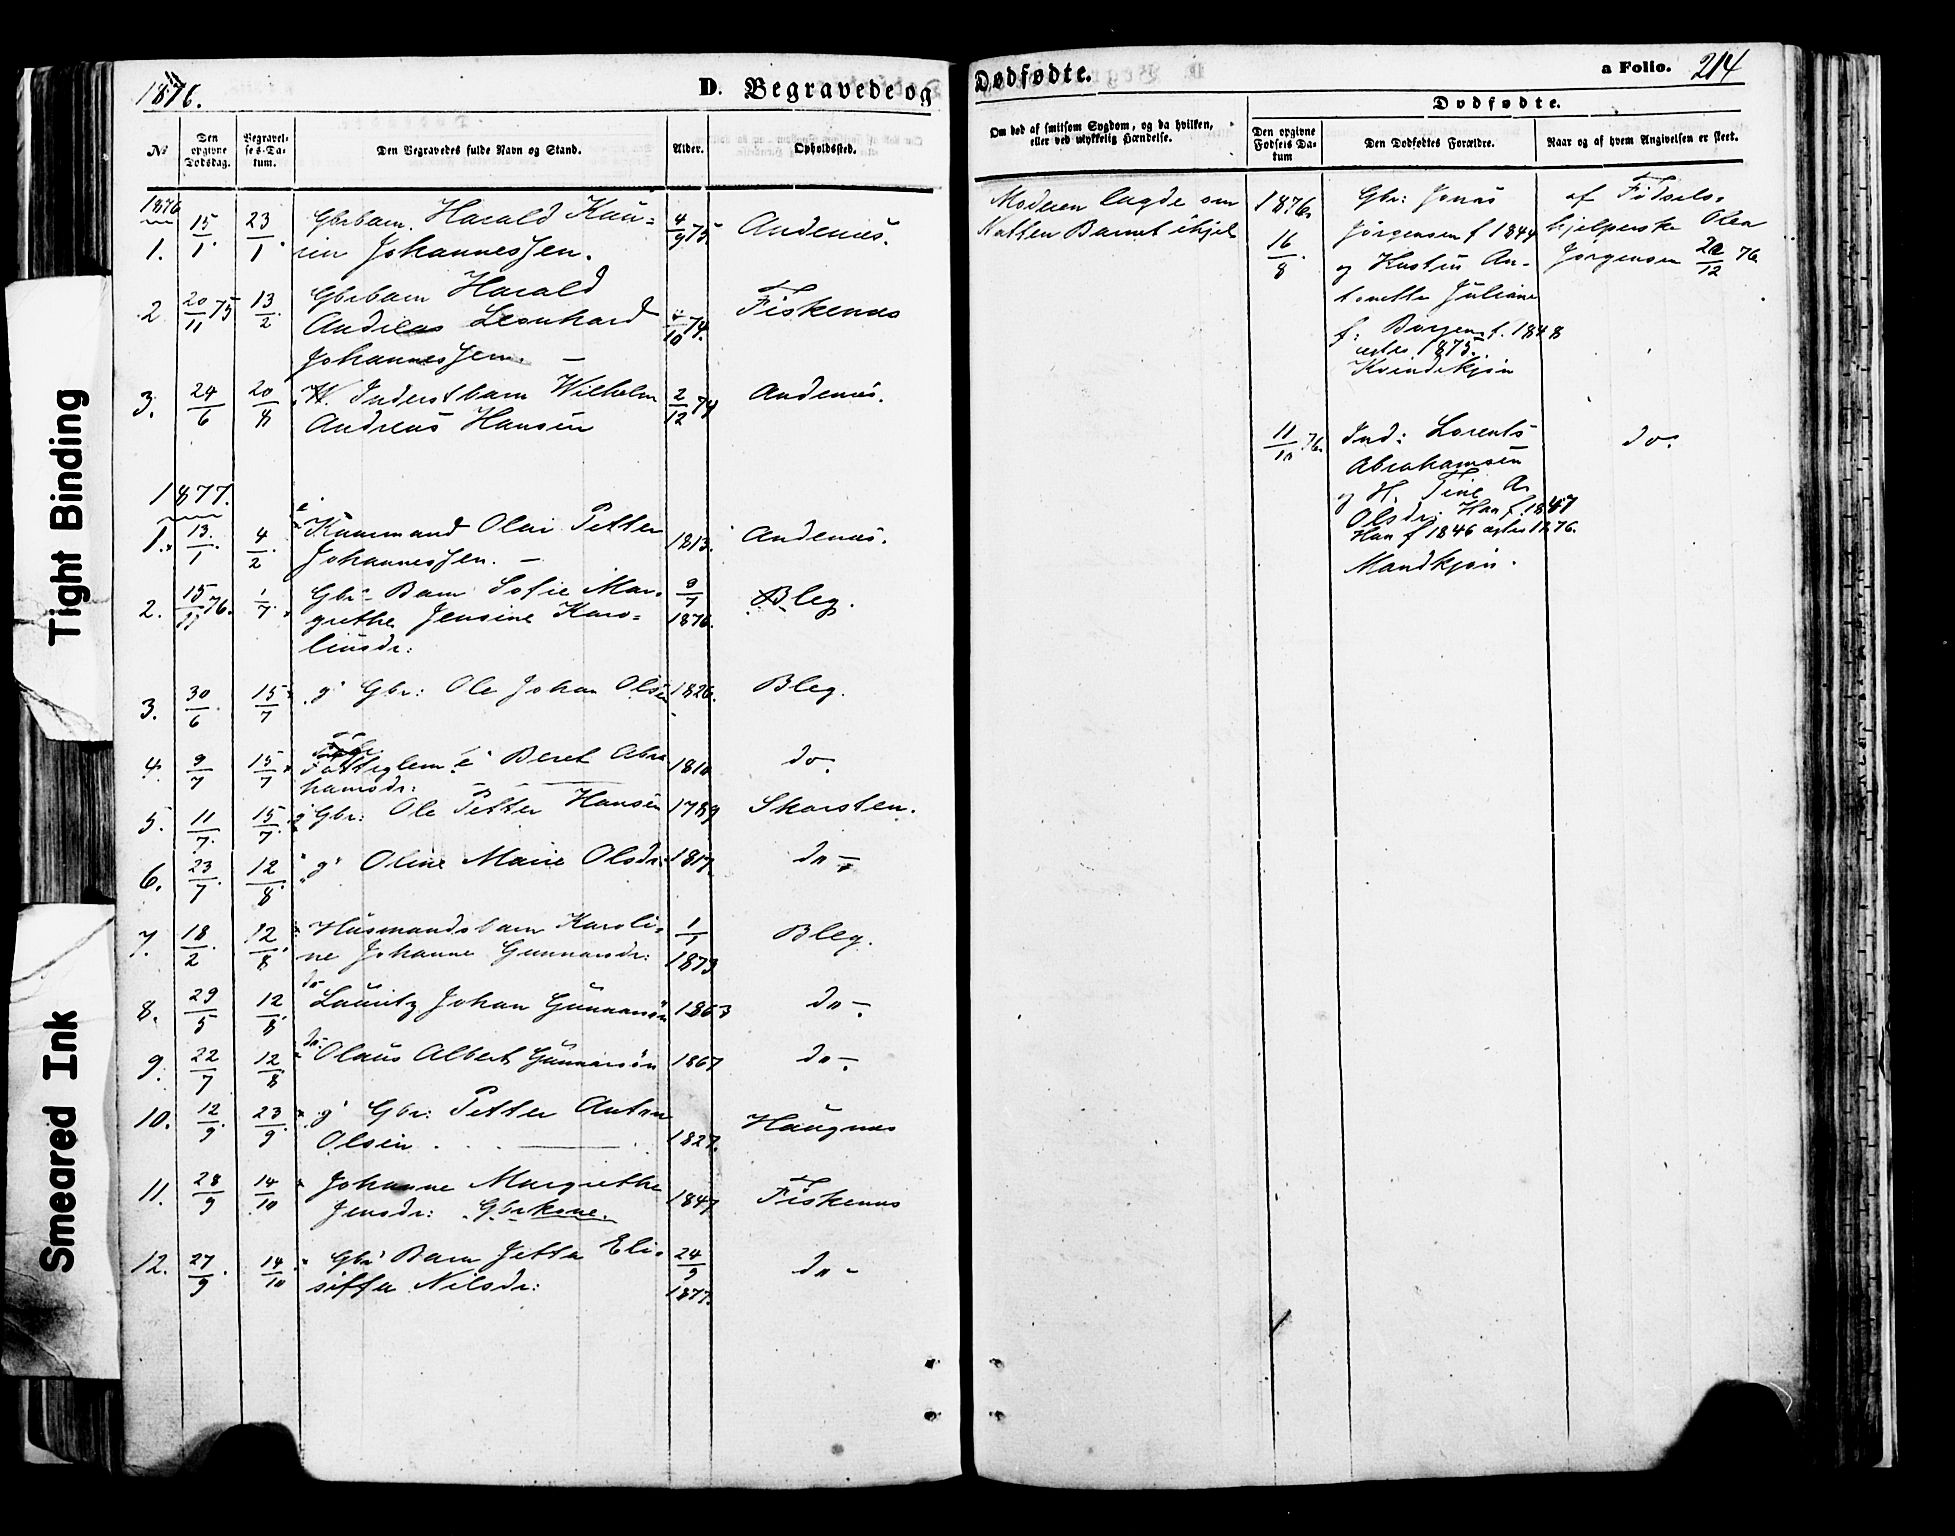 1876.
D. Begravede og
Dødfødte.
a Folio. 214
№
Den opgivne Dødsdag.
Begravelses-Datum.
Den Begravedes fulde Navn og Stand.
Alder.
Opholdssted.
Om død af smitsom Sygdom, og da hvilken, eller ved ulykkelig Hændelse.
Dødfødte.
Den opgivne Fødsels Datum
Den Dødfødtes Forældre.
Naar og af hvem Angivelsen er skeet.
1876
1. 15/1. 23/1. Gbrbarn. Harald Kau=
Johannessen. 4/9 75. Andenæs.
Moderen lagde om
Natten Barnet ihjel
2 20/11 75 13/2. Gbrbarn Harald
Andreas Leonhard
Johannessen. — 4/10 74. Fiskenæs
3. 24/6 20/8 Inderstbarn Wilhelm
Andreas Hansen 2/12 74 Andenæs.
1877.
1. 13./1 4/2. Kaarmand Olai Petter
Johannessen. — 1813. Andenæs.
2. 15/11 76. 1/7. Gbr. Barn Sofie Mar=
grethe Jensine Karo=
liusdr: 9/7 1876. Bleg.
3. 30/6 15/7 g' Gbr: Ole Johan Olsen 1826. Bleg.
4. 9/7 15/7 Fattiglem e' Beret Abra
hamsdr: 1810 do.
5. 11/7. 15/7. g' Gbr: Ole Petter Hansen 1789 Skarsten.
6. 23/7. 12/8. g' Oline Marie Olsdr: 1817. do —
7. 18/2. 12/8. Husmandsbarn Karoli=
ne Johanne Gunnarsdr: 1/1 1873 Bleg.
8. 29/5 12/8. do Lauritz Johan Gunnarsøn 1863 do —.
9. 22/7 12/8 do: Olaus Albert Gunnarsøn 1867 do —.
10. 12/9. 23/9. g' Gbr: Petter Anton
Olsen 1827. Haugnæs
11. 28/9 14/10 Johanne Margrethe
Jensdr: Gbrkone. 1847 Fiskenæs
12. 27/9. 14/10 Gbr' Barn Jetta Eli=
siffa Nilsdr: 24/9 1877. do -
1876. 16/8.
Gbr: Jonas
Jørgensen f 1844
og Hustru An=
tonette Juliane
f: Borgen f. 1848
ægtev. 1875.
Kvindekjøn
af Fødsels=
hjelperske Olea
Jørgensen 20/12 76.
11/10. 76. Ind: Lorents
Abrahamsen
og H. Tine A.
Olsdr. Hun f. 1847
Han f 1846 ægtev 1876.
Mandkjøn.
do.
Tight Binding
Smeared Ink